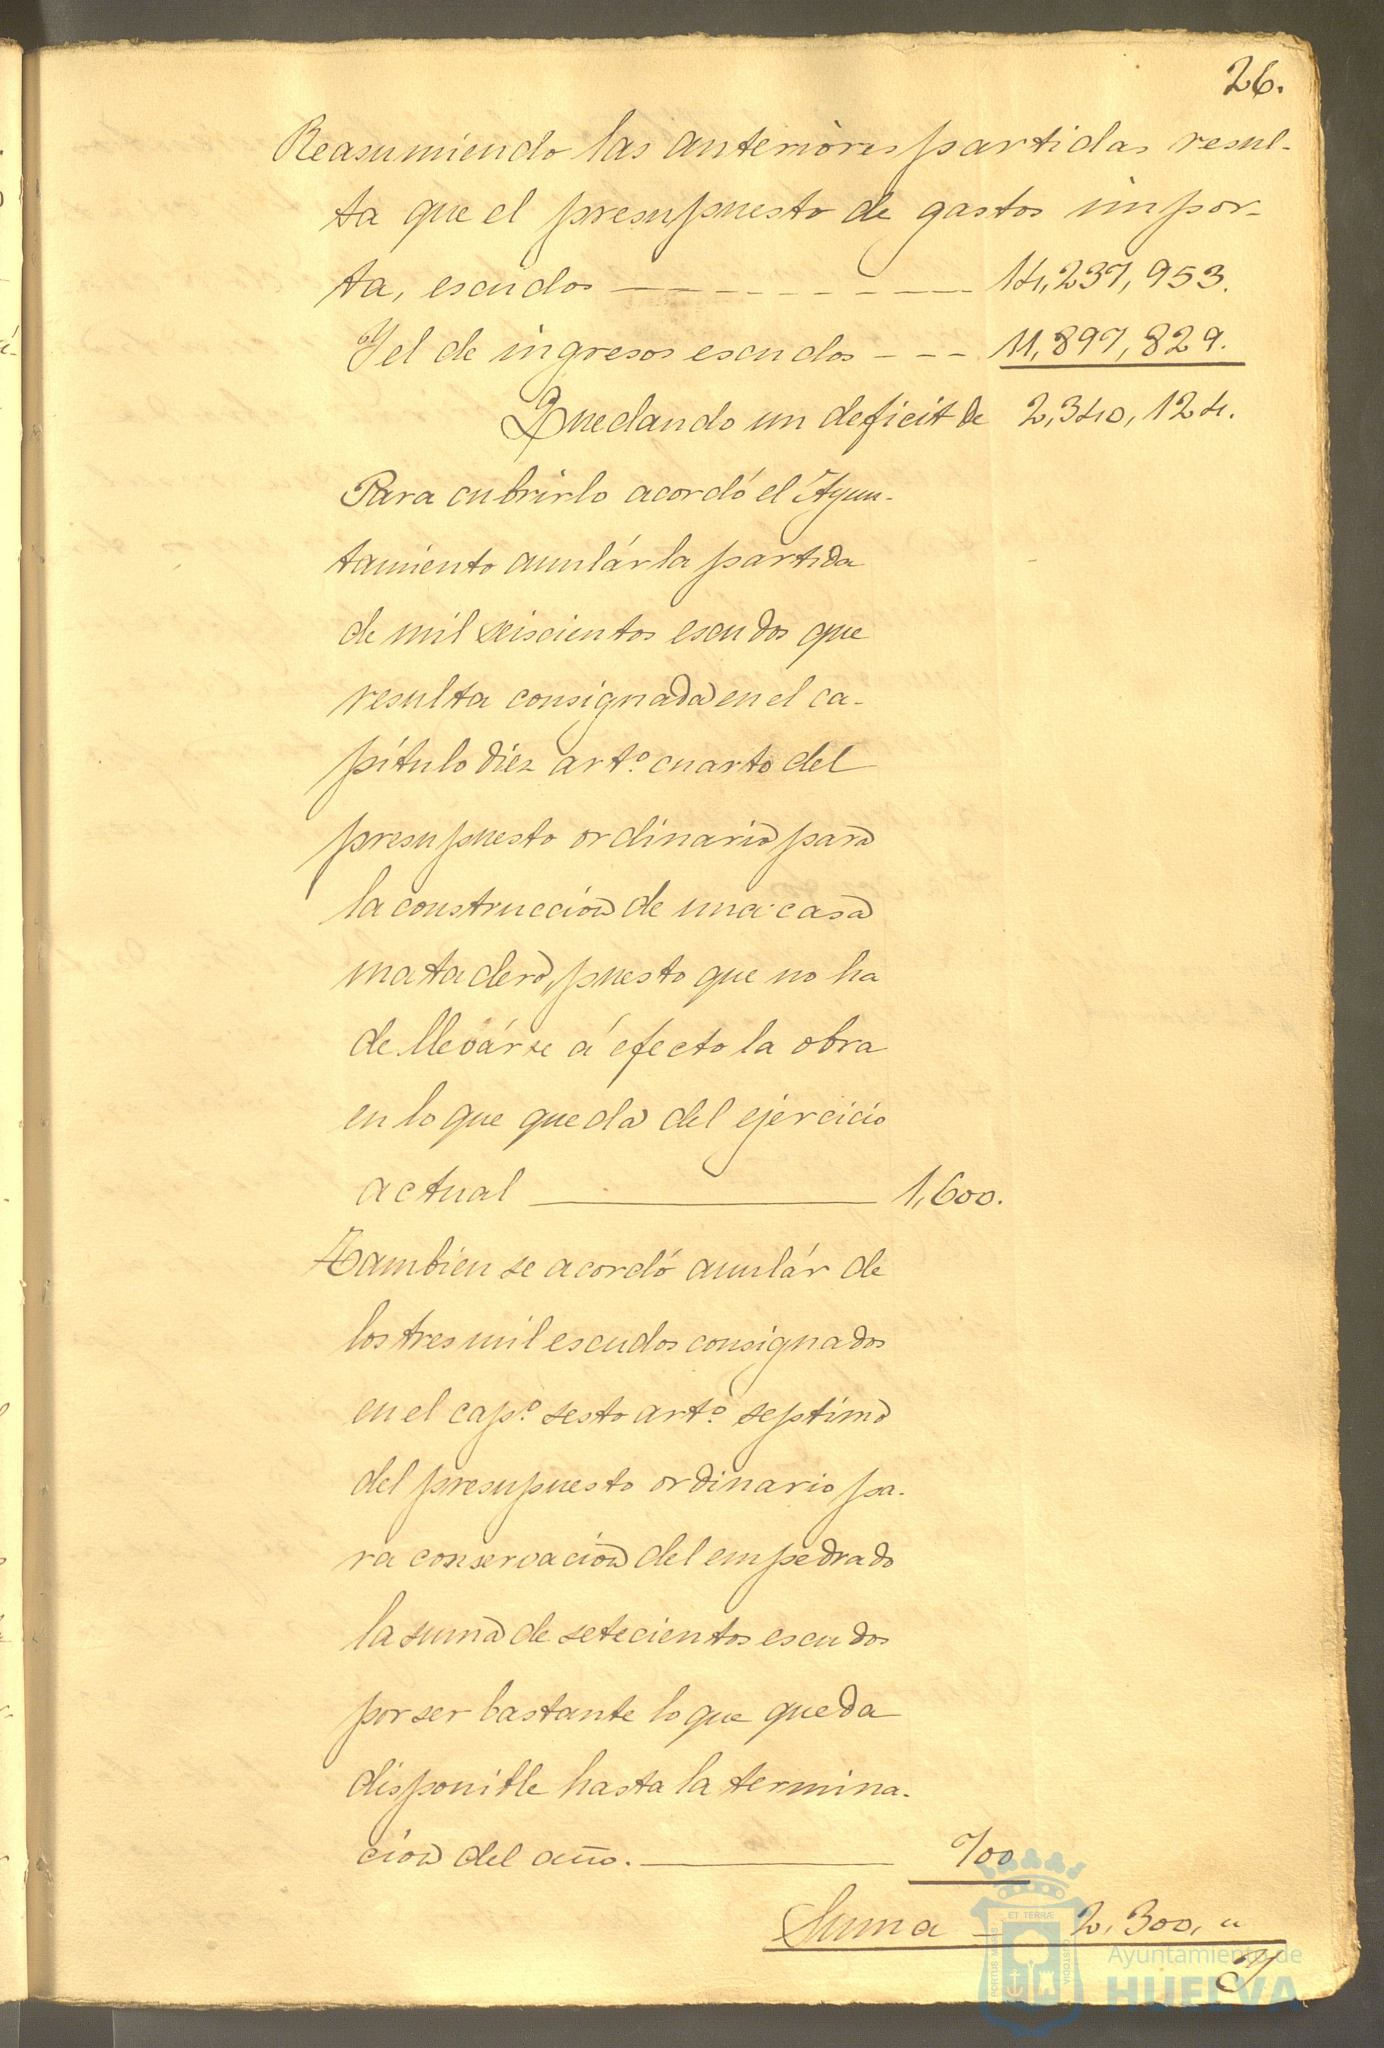 26.
Reasumiendo las anteriores partidas resul-
ta que el presupuesto de gastos impor-
ta, escudos 14,237,953.
Y el de ingresos escudos 11,897,829.
Quedando un deficit de 2,340,124.
Para cubrirlo acordó el Ayun-
tamiento anulár la partida
de mil seiscientos escudos que
resulta consignada en el ca-
pítulo diez artº. cuarto del
presupuesto ordinario para
la construccion de una casa
matadero, puesto que no ha
de llevárse á efecto la obra
en lo que queda del ejercicio
actual 1,600.
Tambien se acordó anulár de
los tres mil escudos consignados
en el capº. sesto artº. septimo
del presupuesto ordinario pa-
ra conservacion del empedrado
la suma de setecientos escudos
por ser bastante lo que queda
disponible hasta la termina-
cion del año. 700
Suma 2,300, "
Y
ET TERRÆ
PORTUS MARIS
CUSTODIA
Ayuntamiento de
HUELVA